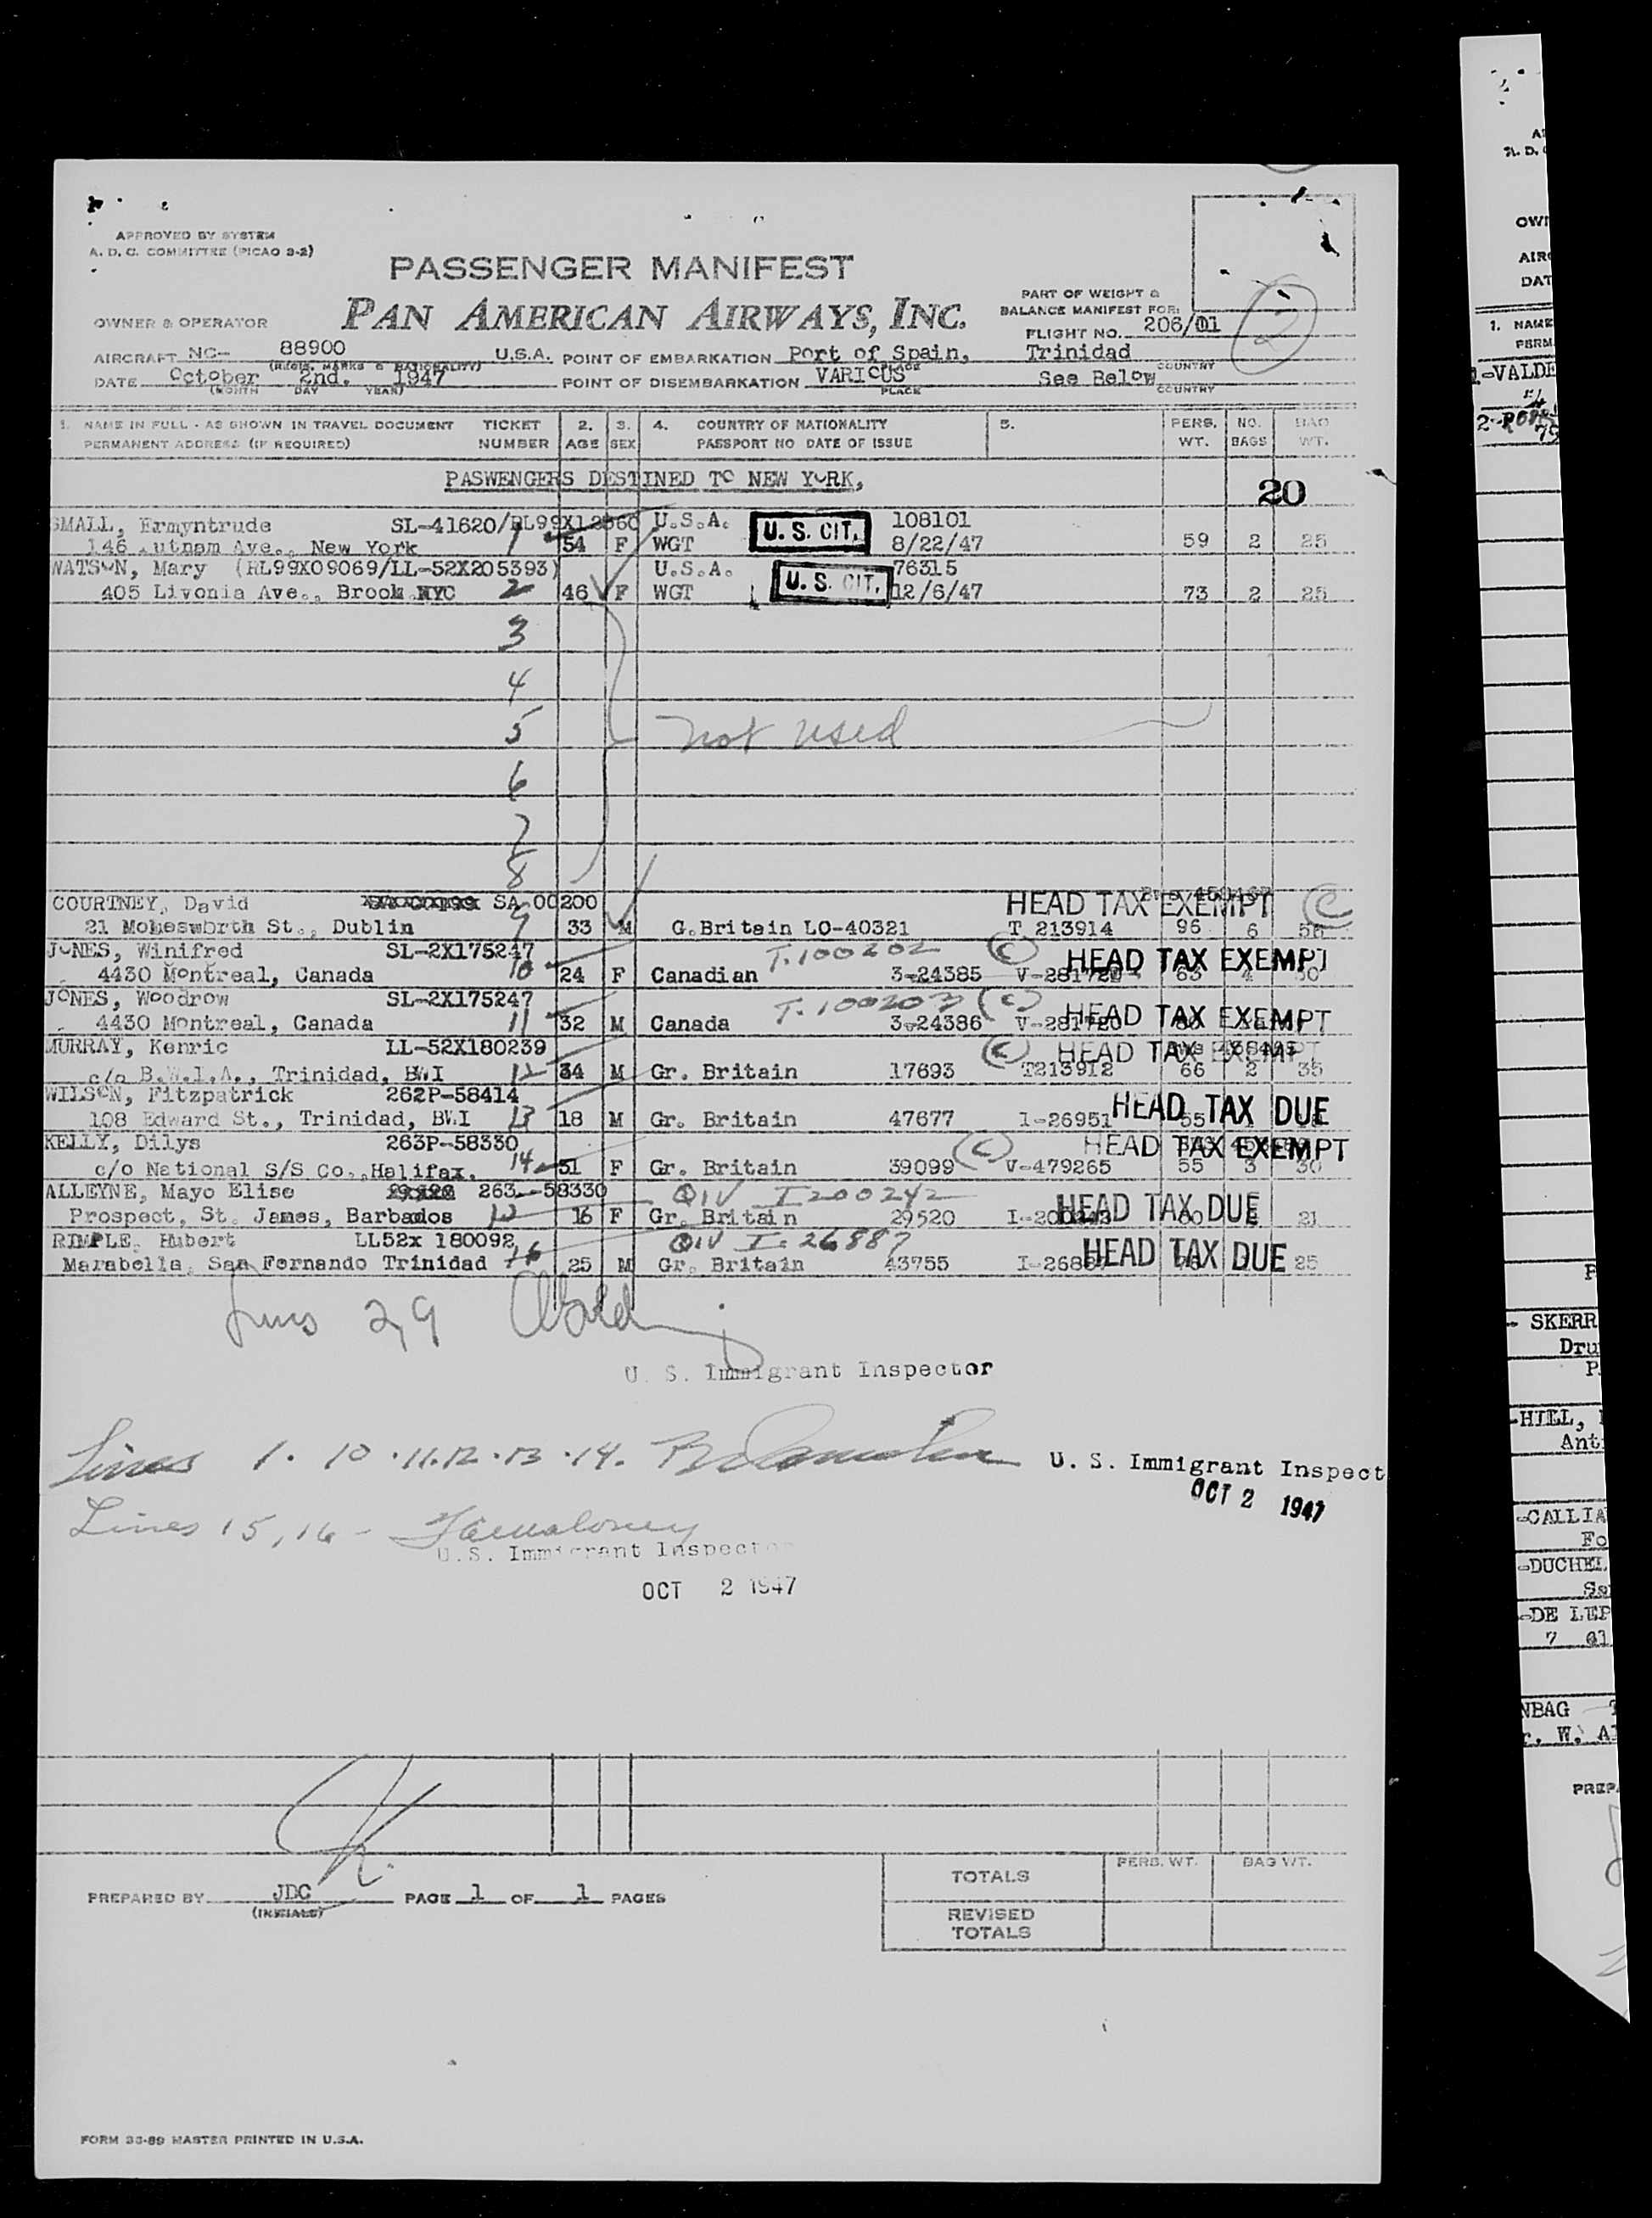 APPROVED BY SYSTEM
A. D. C. COMMITTEE (PICAO 3-2)
PASSENGER MANIFEST
PAN AMERICAN AIRWAYS, INC.
PART OF WEIGHT &
BALANCE MANIFEST FOR:
FLIGHT NO. 206/01
2
OWNER & OPERATOR
AIRCRAFT NC- 88900 U.S.A. POINT OF EMBARKATION Port of Spain, Trinidad
(REGIS. MARKS & NATIONALITY) PLACE COUNTRY
DATE October 2nd. 1947 POINT OF DISEMBARKATION VARIOUS See Below
(MONTH DAY YEAR) PLACE COUNTRY
1. NAME IN FULL - AS SHOWN IN TRAVEL DOCUMENT TICKET 2. 3. 4. COUNTRY OF NATIONALITY 5. PERS. NO. BAG
PERMANENT ADDRESS (IF REQUIRED) NUMBER AGE SEX PASSPORT NO DATE OF ISSUE WT. BAGS WT.
PASWENGERS DESTINED TO NEW YORK,
20
SMALL, Ermyntrude SL-41620/ U.S.A. U. S. CIT. 108101
146 utnam Ave., New York 1 54 F WGT 8/22/47 59 2 25
WATSON, Mary (RL99X09069/LL-52X205393) U.S.A. U. S. CIT. 76315
405 Livonia Ave., Brook NYC 2 46 F WGT 12/6/47 73 2 25
3
4
5 not used
6
7
8
COURTNEY, David SA 00200 HEAD TAX EXEMPT C
21 Molesworth St., Dublin 9 33 M G.Britain LO-40321 T 213914 96 6 56
JONES, Winifred SL-2X175247 T.100202 C HEAD TAX EXEMPT
4430 Montreal, Canada 10 24 F Canadian 3-24385 63 4
JONES, Woodrow SL-2X175247 T.100203 (C) HEAD TAX EXEMPT
4430 Montreal, Canada 11 32 M Canada 3-24386
MURRAY, Kenric LL-52X180239 C HEAD TAX EXEMPT
c/o B.W.I.A., Trinidad, BWI 12 34 M Gr. Britain 17693 T213912 66 2 35
WILSON, Fitzpatrick 262P-58414 HEAD TAX DUE
108 Edward St., Trinidad, BWI 13 18 M Gr. Britain 47677 I-26951 55
KELLY, Dilys 263P-58330 C HEAD TAX EXEMPT
c/o National S/S Co., Halifax. 14 51 F Gr. Britain 39099 V-479265 55 3 30
ALLEYNE, Mayo Elise 263--58330 QIV I 200242 HEAD TAX DUE
Prospect, St. James, Barbados 16 F Gr. Britain 29520 21
RIMPLE, Hubert LL52x 180092 QIV I. 26887 HEAD TAX DUE
Marabella, San Fernando Trinidad 16 25 M Gr. Britain 43755 25
Lines 2, 9
U. S. Immigrant Inspector
Lines 1. 10 . 11. 12 . 13 . 14. U. S. Immigrant Inspect
OCT 2 1947
Lines 15, 16 -
U.S. Immigrant Inspector
OCT 2 1947
PREPARED BY JDC PAGE 1 OF 1 PAGES
(INITIALS)
PERS. WT. BAG WT.
TOTALS
REVISED
TOTALS
FORM 33-89 MASTER PRINTED IN U.S.A.
OWN
AIRC
DAT
1. NAME
PERM
1-VALDE
SKERR
Dru
HILL,
Ant
CALLIA
Fo
DUCHEL
Sa
DE LEP
NBAG
PREPA